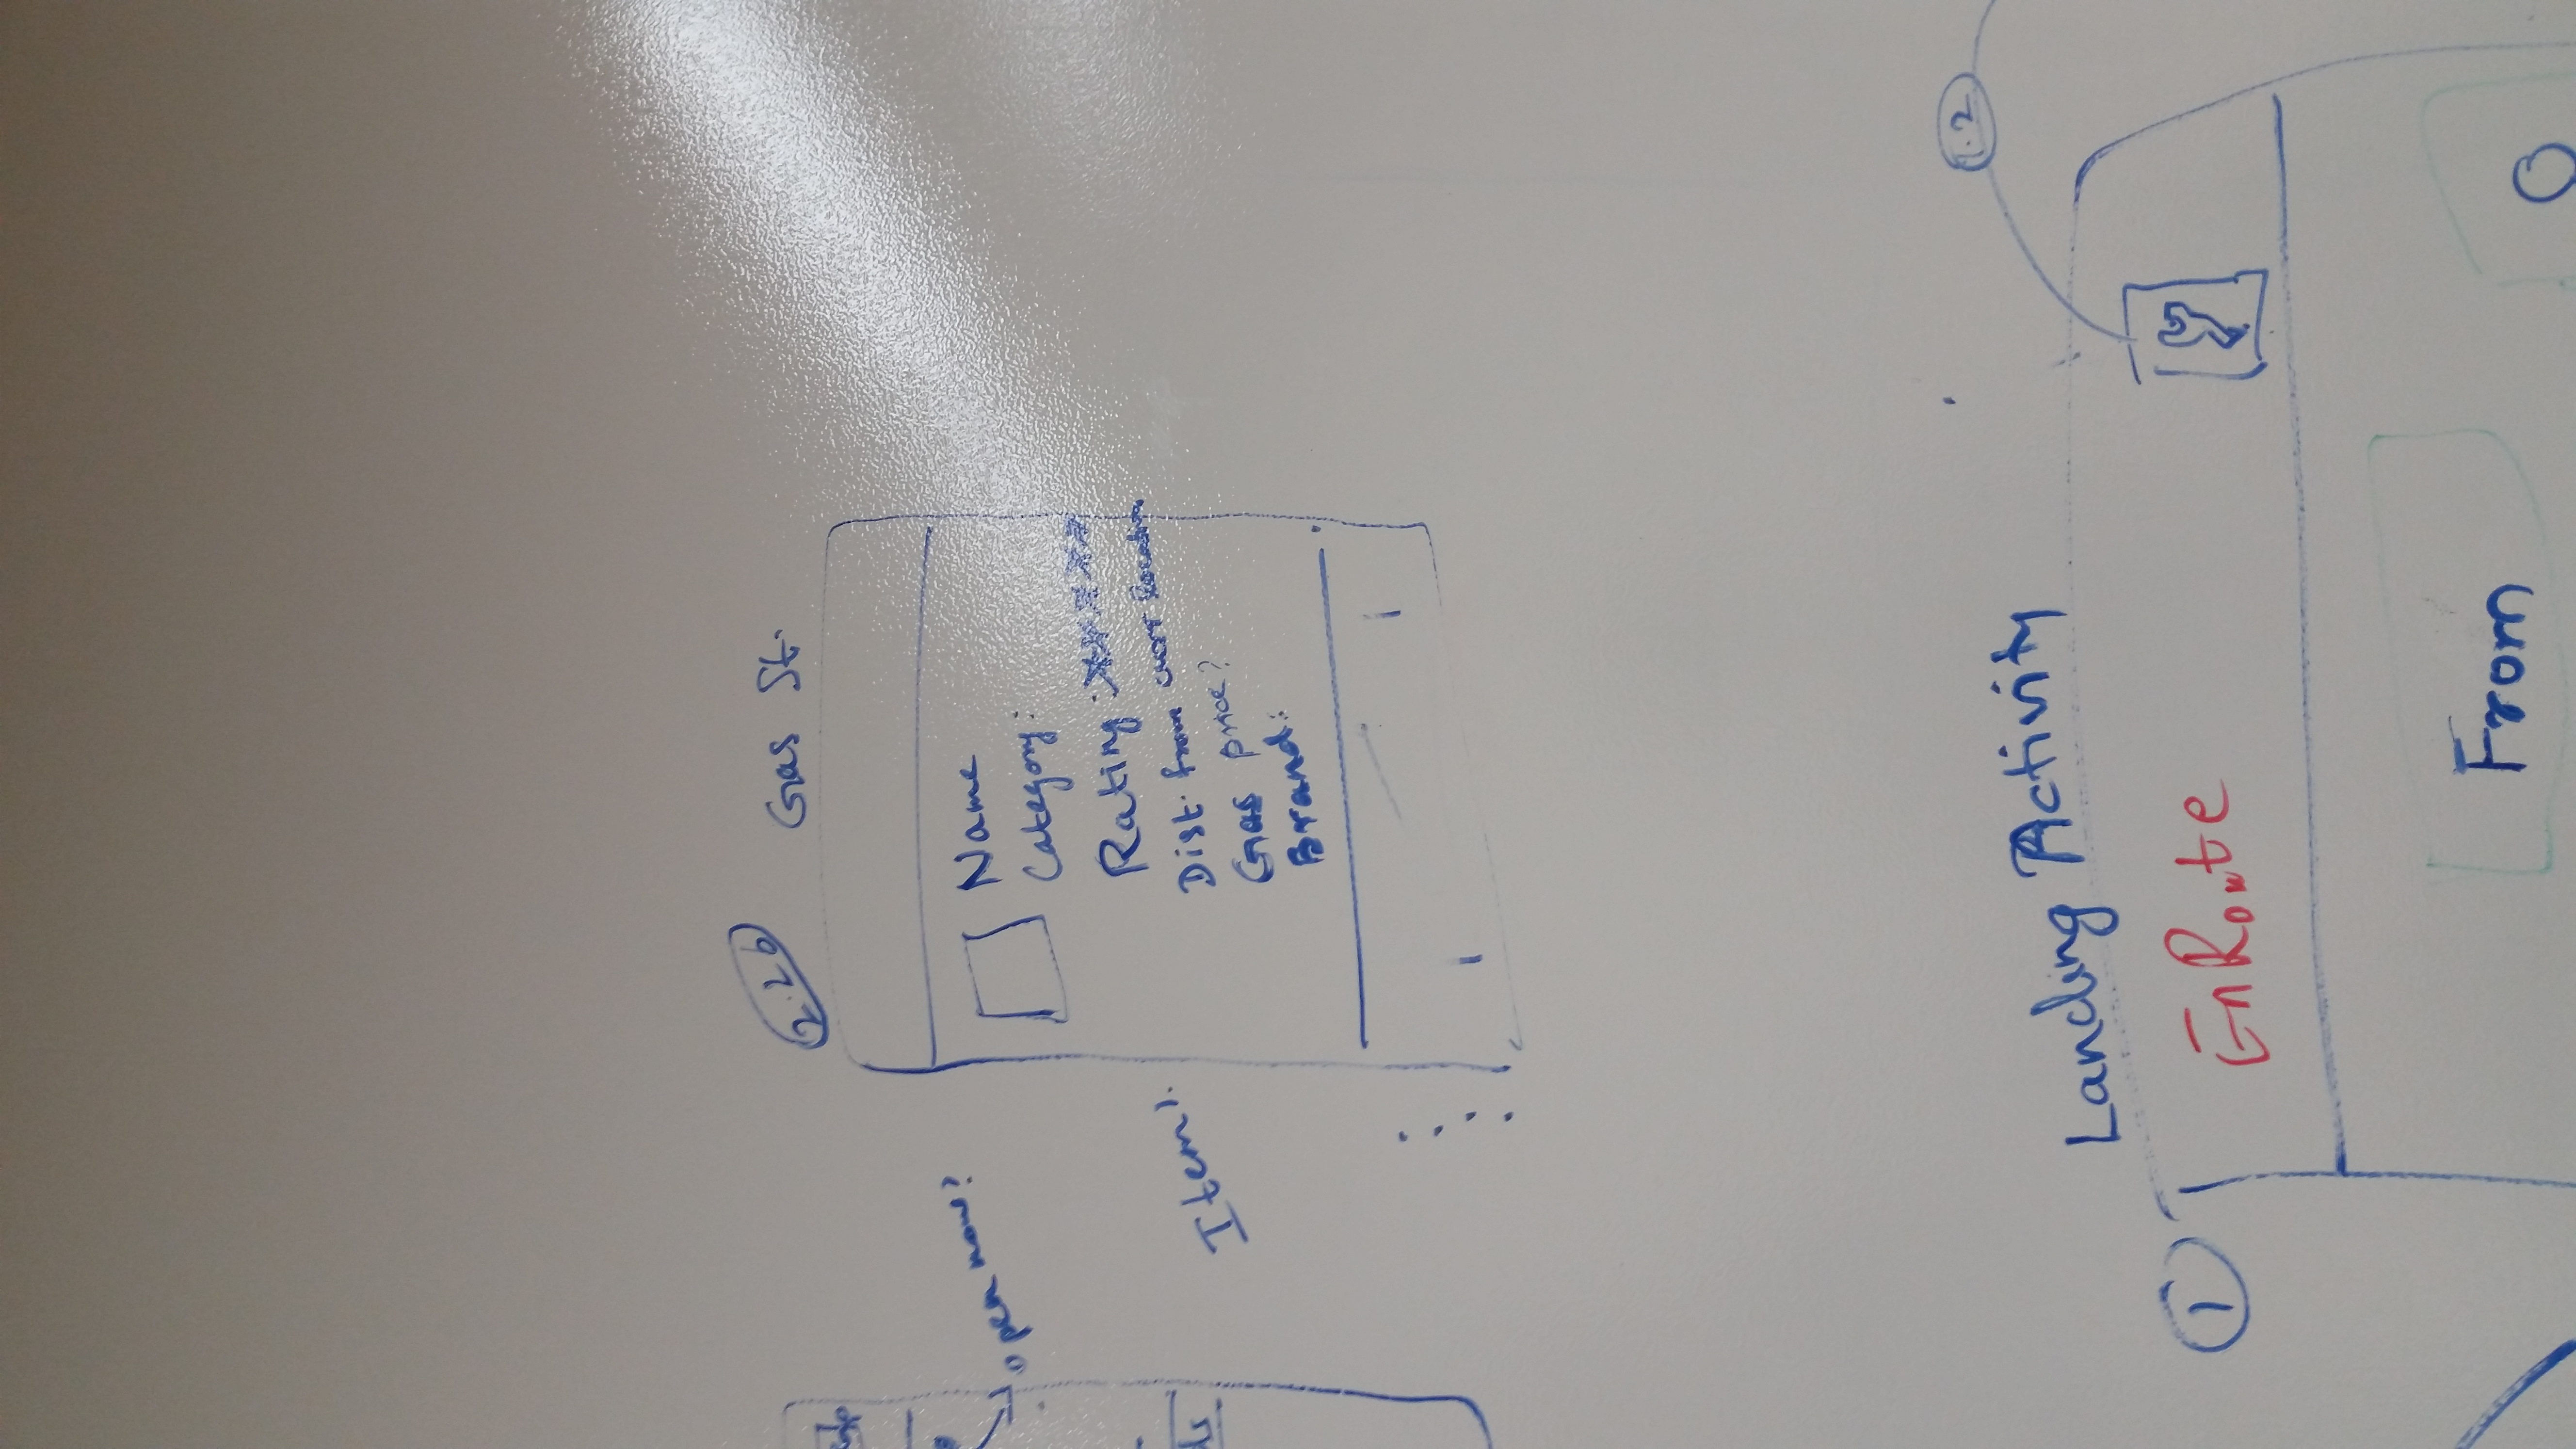 2.2b
Gas St.
open now?
Name
Category:
Rating: *****
Item 1.
Dist. from curr location
Gas price?
Brand:
1.2
Landing Activity
1
EnRoute
From